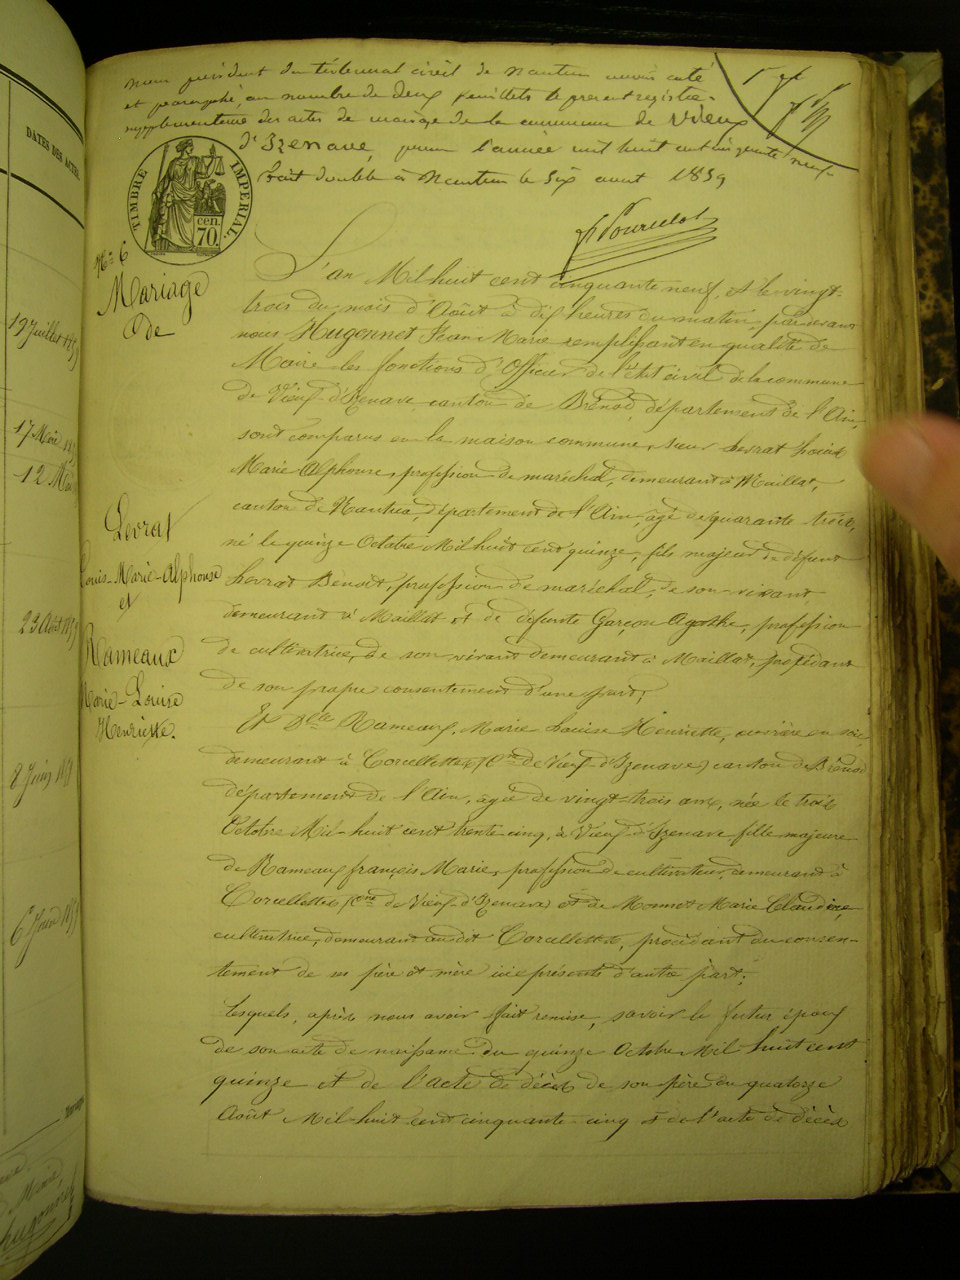 DATES DES ACTES.
19 Juillet 1859
17 Mars
12 Mai
23 Août 1859
8 Juin 1859
6 Juin 1859
président du tribunal civil de Nantua avons coté
et paraphé, au nombre de deux feuillets le présent registre
supplémentaire des actes de mariage de la commune de Vieux
d'Izenave, pour l'année mil huit cent cinquante neuf
Fait double à Nantua le six aout 1859
1er
TIMBRE IMPÉRIAL.
70. cen.
No 6
Mariage
de
Levrat
Louis-Marie-Alphonse
et
Rameaux
Marie-Louise
Henriette.
L'an Mil huit cent cinquante neuf, et le vingt-
trois du mois d'Août à dix heures du matin, pardevant
nous Hugonnet Jean Marie remplissant en qualité de
Maire les fonctions d'Officier de l'état civil de la commune
de Vieux-d'Izenave, canton de Brénod, département de l'Ain,
sont comparus en la maison commune, sieur Levrat Louis
Marie Alphonse, profession de maréchal, demeurant à Maillat,
canton de Nantua, département de l'Ain, âgé de quarante trois,
né le quinze Octobre Mil huit cent quinze, fils majeur de défunt
Levrat Benoît, profession de maréchal, de son vivant
demeurant à Maillat et de défunte Garçon Agathe, profession
de cultivatrice, de son vivant demeurant à Maillat, procédant
de son propre consentement d'une part;
Et Dlle Rameaux, Marie Louise Henriette, ouvrière en soie,
demeurant à Corcellette, (Cne de Vieux-d'Izenave) canton de Brénod
département de l'Ain, âgée de vingt-trois ans, née le trois
Octobre Mil-huit cent trente cinq, à Vieux-d'Izenave fille majeure
de Rameaux françois Marie, profession de cultivateur, demeurant à
Corcellette (Cne de Vieux-d'Izenave) et de Monnet Marie Claudine,
cultivatrice, demeurant audit Corcellette, procédant du consen-
tement de ses père et mère ici présents d'autre part;
Lesquels, après nous avoir fait remise, savoir le futur époux
de son acte de naissance du quinze Octobre Mil huit cent
quinze et de l'acte de décès de son père du quatorze
Août Mil-huit cent cinquante-cinq et de l'acte de décès